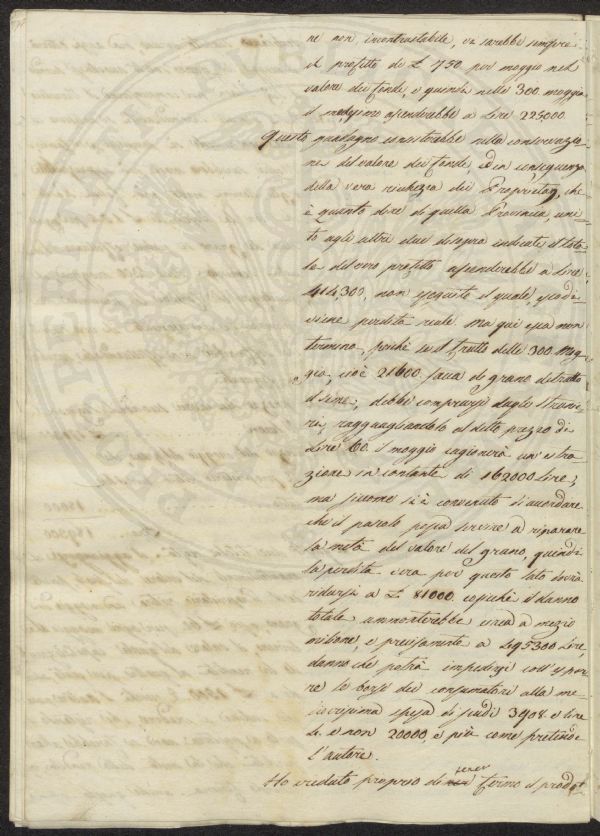 ne non incontrastabile, vi sarebbe sempre
il profitto di £ 750 per moggio nel
valore dei fondi, e quindi nelle 300 moggia
il medesimo ascenderebbe a Lire 225000.
Questo guadagno consisterebbe nella conservazio-
ne del valore dei fondi, ed in conseguenza
della vera ricchezza dei Proprietarj, che
è quanto dire di quella Provincia, uni-
to agli altri due disopra indicati il tota-
le del vero profitto ascenderebbe a Lire
414300, non eseguito il quale, esso di-
viene perdita reale. Ma qui essa non
termina, poiché se il frutto delle 300 Mog-
gia, cioè 21600 sacca di grano detratto
il seme, debbe comprarsi dagli stranie-
ri, ragguagliandolo al detto prezzo di
Lire 60. il moggio cagionerà un' estra-
zione in contante di 162000 Lire;
ma siccome si è convenuto di accordare
che il paroto possa servire a riparare
la metà del valore del grano, quindi
la perdita vera per questo lato dovrà
ridursi a £ 81000. cosicché il danno
totale ammonterebbe circa a mezzo
milione, e precisamente a 495300 Lire,
danno che potrà impedirsi coll'espor-
re le borse dei consumatori alla me-
schinissima spesa di scudi 3908. e lire
e non 20000, e più come pretende
l'autore.
Ho creduto proprio di tener fermo il prodot